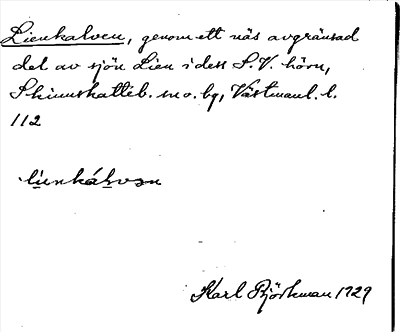 Lienkalven, genom ett näs avgränsad
del av sjön Lien i dess S.V. hörn,
Skinnskatteb. sn o. bg, Västmanl. l.
112
li̲enkálvən
Karl Björkman 1929